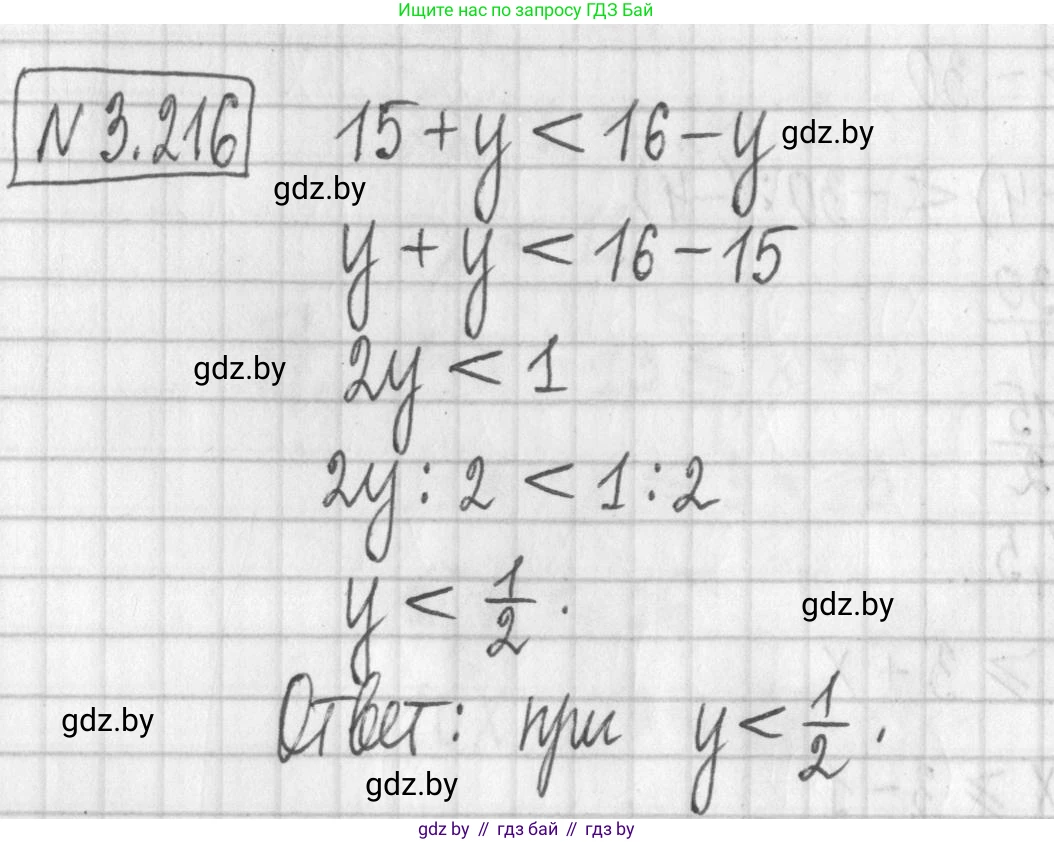 Ищите нас по запросу ГДЗ Бай
N 3.216
15 + y < 16 - y gdz.by
gdz.by
y + y < 16 - 15
gdz.by 2y < 1
2y : 2 < 1 : 2
y < 1/2 .
gdz.by
Ответ: при y < 1/2 .
gdz.by
gdz.by
gdz by // гдз бай // гдз by